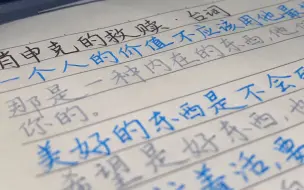 肖申克的救赎·台词
一个人的价值不应该用他
那是一种内在的东西他
你的。
美好的东西是不会
希望是好东西,
着活,要